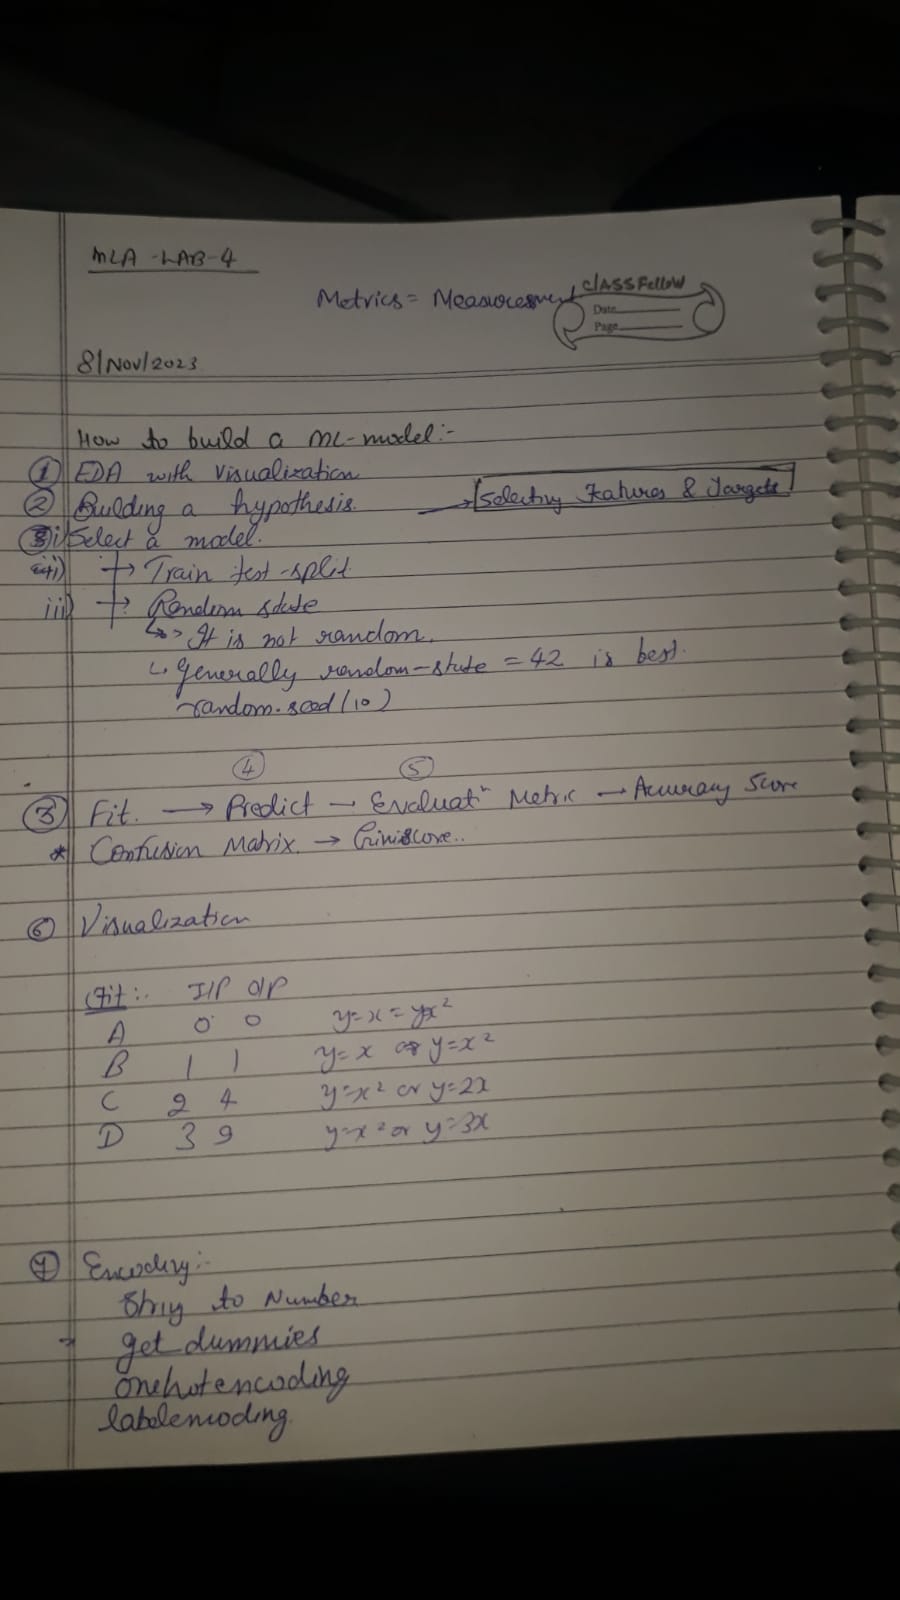 MLA-LAB-4
Metrics = Measurement
classFellow
Date
Page
8/Nov/2023
How to build a ML-model:-
① EDA with Visualization
② Building a hypothesis. → Selecting Features & Targets
③ i) Select a model.
ii) → Train test-split
iii) → Random state
↳ It is not random.
↳ Generally random-state = 42 is best.
random.seed(10)
④ ⑤
③ Fit. → Predict → Evaluatⁿ Metric → Accuracy Score
* Confusion Matrix → Giniscore..
⑥ Visualization
Fit:. I/P O/P
A 0 0 y=x=yx²
B 1 1 y=x or y=x²
C 2 4 y=x² or y=2x
D 3 9 y=x² or y=3x
⑦ Encoding:-
String to Number
→ get dummies
onehotencoding
labelencoding.